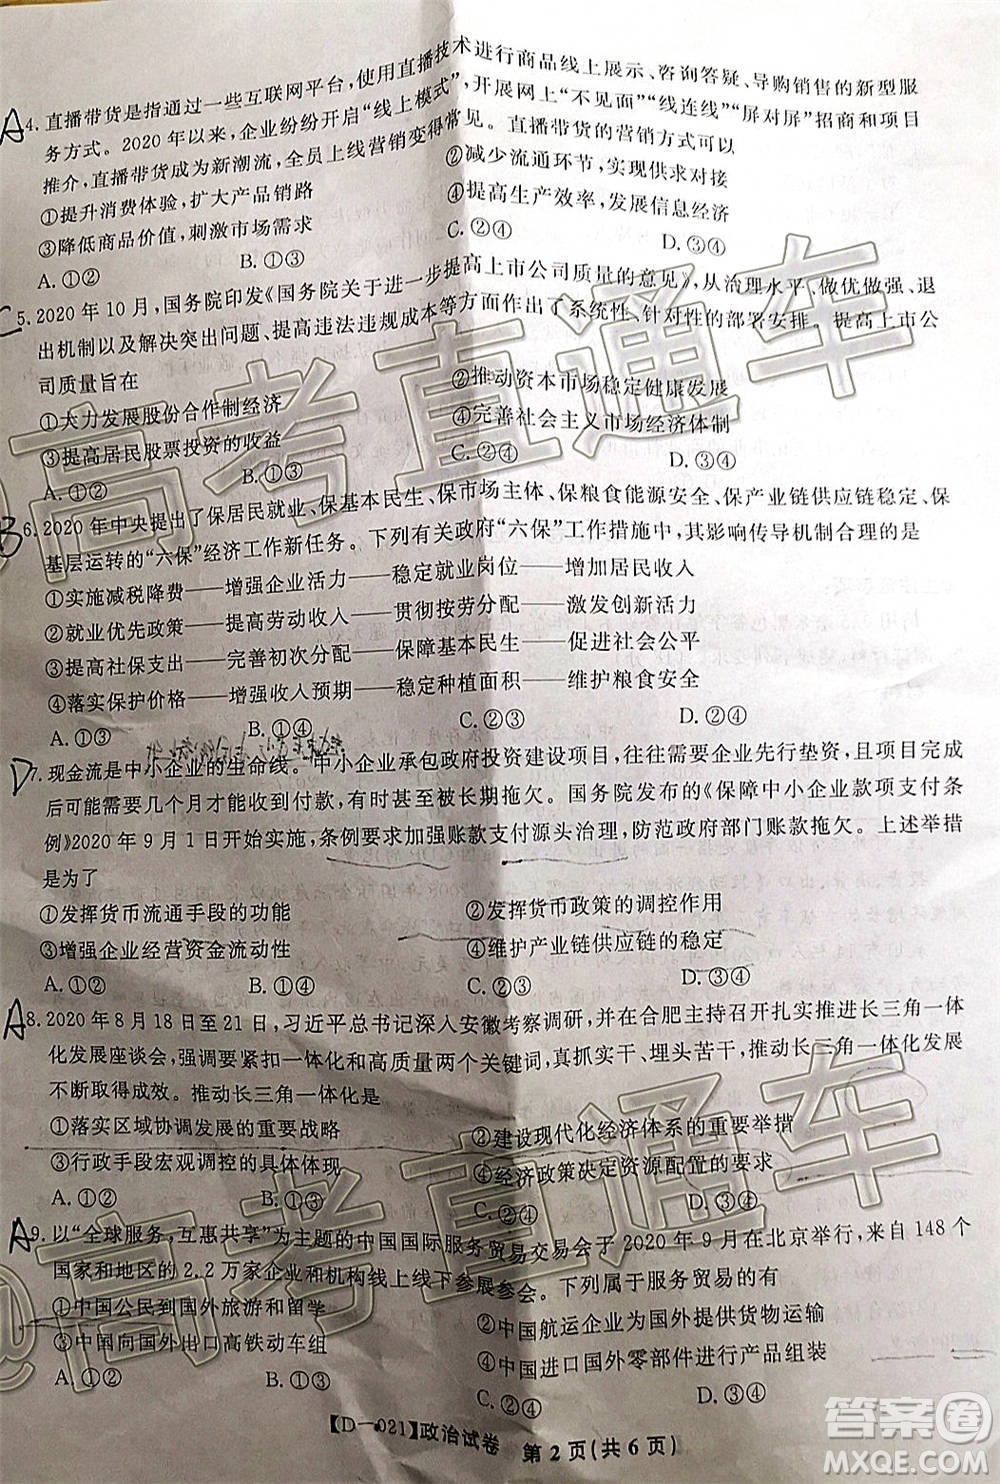 A 4. 直播带货是指通过一些互联网平台，使用直播技术进行商品线上展示、咨询答疑、导购销售的新型服
务方式。2020年以来，企业纷纷开启“线上模式”，开展网上“不见面”“线连线”“屏对屏”招商和项目
推介，直播带货成为新潮流，全员上线营销变得常见。直播带货的营销方式可以
①提升消费体验，扩大产品销路 ②减少流通环节，实现供求对接
③降低商品价值，刺激市场需求 ④提高生产效率，发展信息经济
A. ①② B. ①③ C. ②④ D. ③④
C 5. 2020年10月，国务院印发《国务院关于进一步提高上市公司质量的意见》，从治理水平、做优做强、退
出机制以及解决突出问题、提高违法违规成本等方面作出了系统性、针对性的部署安排。提高上市公
司质量旨在
①大力发展股份合作制经济 ②推动资本市场稳定健康发展
③提高居民股票投资的收益 ④完善社会主义市场经济体制
A. ①② B. ①③ C. ②④ D. ③④
B 6. 2020年中央提出了保居民就业、保基本民生、保市场主体、保粮食能源安全、保产业链供应链稳定、保
基层运转的“六保”经济工作新任务。下列有关政府“六保”工作措施中，其影响传导机制合理的是
①实施减税降费——增强企业活力——稳定就业岗位——增加居民收入
②就业优先政策——提高劳动收入——贯彻按劳分配——激发创新活力
③提高社保支出——完善初次分配——保障基本民生——促进社会公平
④落实保护价格——增强收入预期——稳定种植面积——维护粮食安全
A. ①③ B. ①④ C. ②③ D. ②④
D 7. 现金流是中小企业的生命线。中小企业承包政府投资建设项目，往往需要企业先行垫资，且项目完成
后可能需要几个月才能收到付款，有时甚至被长期拖欠。国务院发布的《保障中小企业款项支付条
例》2020年9月1日开始实施，条例要求加强账款支付源头治理，防范政府部门账款拖欠。上述举措
是为了
①发挥货币流通手段的功能 ②发挥货币政策的调控作用
③增强企业经营资金流动性 ④维护产业链供应链的稳定
A. ①② B. ①③ C. ②④ D. ③④
A 8. 2020年8月18日至21日，习近平总书记深入安徽考察调研，并在合肥主持召开扎实推进长三角一体
化发展座谈会，强调要紧扣一体化和高质量两个关键词，真抓实干、埋头苦干，推动长三角一体化发展
不断取得成效。推动长三角一体化是
①落实区域协调发展的重要战略 ②建设现代化经济体系的重要举措
③行政手段宏观调控的具体体现 ④经济政策决定资源配置的要求
A. ①② B. ①③ C. ②④ D. ③④
A 9. 以“全球服务，互惠共享”为主题的中国国际服务贸易交易会于2020年9月在北京举行，来自148个
国家和地区的2.2万家企业和机构线上线下参展参会。下列属于服务贸易的有
①中国公民到国外旅游和留学 ②中国航运企业为国外提供货物运输
③中国向国外出口高铁动车组 ④中国进口国外零部件进行产品组装
A. ①② B. ①③ C. ②④ D. ③④
【D-021】政治试卷 第2页(共6页)
@高考直通车
@高考直通车
答案圈
MXQE.COM